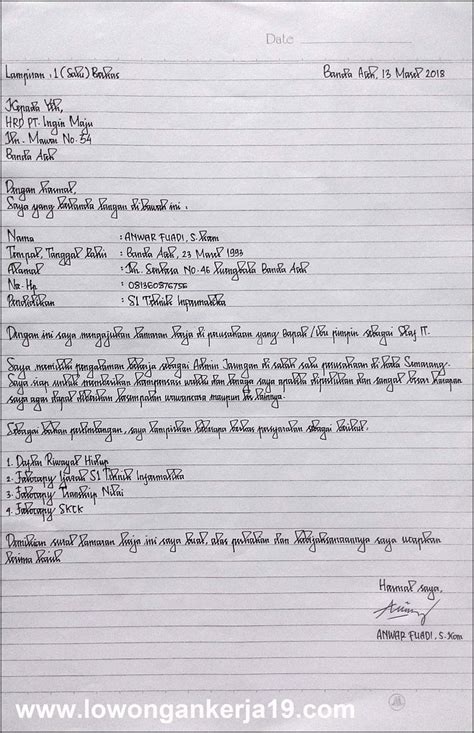 Date
Lampiran : 1 (Satu) Berkas
Banda Aceh, 13 Maret 2018
Kepada Yth,
HRD PT. Ingin Maju
Jln. Mawar No. 54
Banda Aceh
Dengan hormat,
Saya yang bertanda tangan di bawah ini :
Nama : ANWAR FUADI, S.Kom
Tempat, Tanggal lahir : Banda Aceh, 23 Maret 1993
Alamat : Jln. Sentosa No. 46 Banda Aceh
No. Hp : 081360876756
Pendidikan : S1 Teknik Informatika
Dengan ini saya mengajukan lamaran kerja di perusahaan yang Bapak / Ibu pimpin sebagai Staf IT.
Saya memiliki pengalaman bekerja sebagai Admin Jaringan di salah satu perusahaan di kota Semarang.
Saya siap untuk memberikan kompensasi waktu dan tenaga saya apabila diperlukan dan sangat besar harapan
saya agar dapat diberikan kesempatan wawancara maupun tes lainnya.
Sebagai bahan pertimbangan, saya lampirkan beberapa berkas persyaratan sebagai berikut.
1. Daftar Riwayat Hidup
2. Fotocopy Ijazah S1 Teknik Informatika
3. Fotocopy Transkip Nilai
4. Fotocopy SKCK
Demikian surat lamaran kerja ini saya buat, atas perhatian dan kebijaksanaannya saya ucapkan
terima kasih
Hormat saya,
ANWAR FUADI, S.Kom
www.lowongankerja19.com